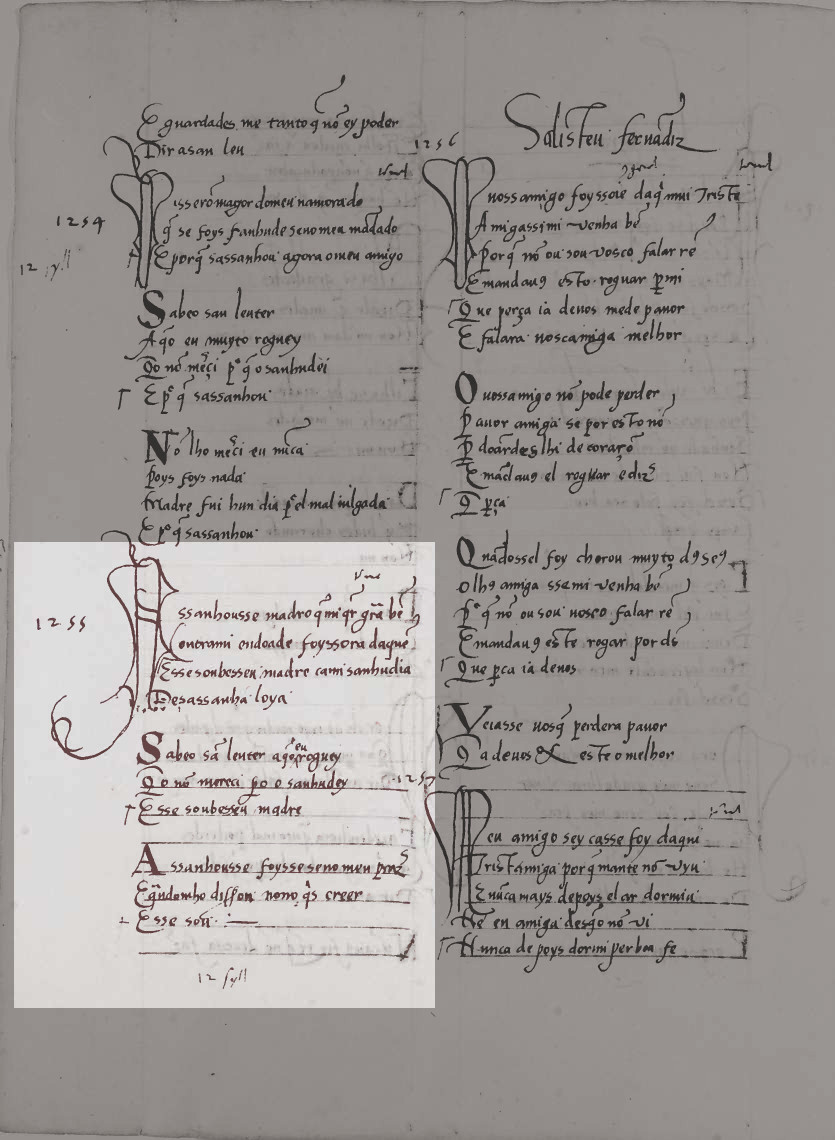 E guardades me tanto q̃ nõ ey poder
Dir a san leu
1254
Assanhou
isserõ magor do meu namorado
q̃ se foys sanhud e seno meu mãdado
E porq̃ sassanhou agora omeu amigo
12 syll
Sabeo san leuter
Aq̃o eu muyto roguey
Qo nõ mẽçi p̃ q̃ o sanhudei
E p̃ q̃ sassanhou
Nõ lho mẽçi eu mĩca
Poys foys nada
Madre fui hun dia p̃ el mal iulgada
E p̃ q̃ sassanhou
1255
ssanhousse madr o q̃ mi q̃r grã bẽ
Contra mi endoade foyssora daquẽ
Esse soubesseu madre camisanhudia
Desassanha loya
Sabeo sã leuter aq̃o eu roguey
Qo nõ mereci po o sanhudey
Esse soubesseu madre
Assanhousse foysse seno meu praz
E q̃ndomho disserõ nono q̃s creer
Esse sou
12 syll
1256
Galisteu fernãdiz
O uoss amigo foysse daq̃ mui triste
Amigassimi uenha bẽ
Porq̃ nõ ousou uosco falar rẽ
E mandau9 esto roguar p mi
Que perça ia deuos mede pauor
E falara uoscamiga melhor
O uossamigo nõ pode perder
Pauor amiga se por esto nõ
Pdoardeslhi de coraçõ
E mãdau9 el roguar e diz
Q pça
Quãdossel foy chorou muyto d9 se9
olh9 amiga ssemi uenha bẽ
P̃ q̃ nõ ousou uosco falar rẽ
E mandau9 este rogar por ds
Que pca ia deuos
Veiasse uosq̃ perdera pauor
Q a deuos & este o melhor
1257
eu amigo sey casse foy daqui
Tristamiga porq̃ mante nõ uyu
E nũca mays depoys el ar dormiu
Nẽ eu amiga desq̃o nõ ui
Nunca depoys dormi per boa fe